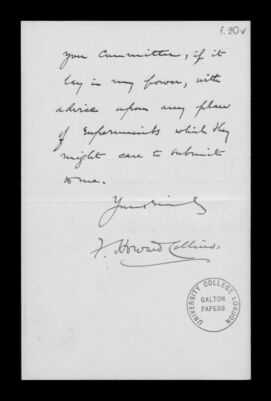 f. 20v
your Committee, if it
lay in my power, with
advice upon any plan
of experiments which they
might care to submit
to me.
Yours sincerely
F. Howard Collins.
UNIVERSITY COLLEGE LONDON
GALTON
PAPERS